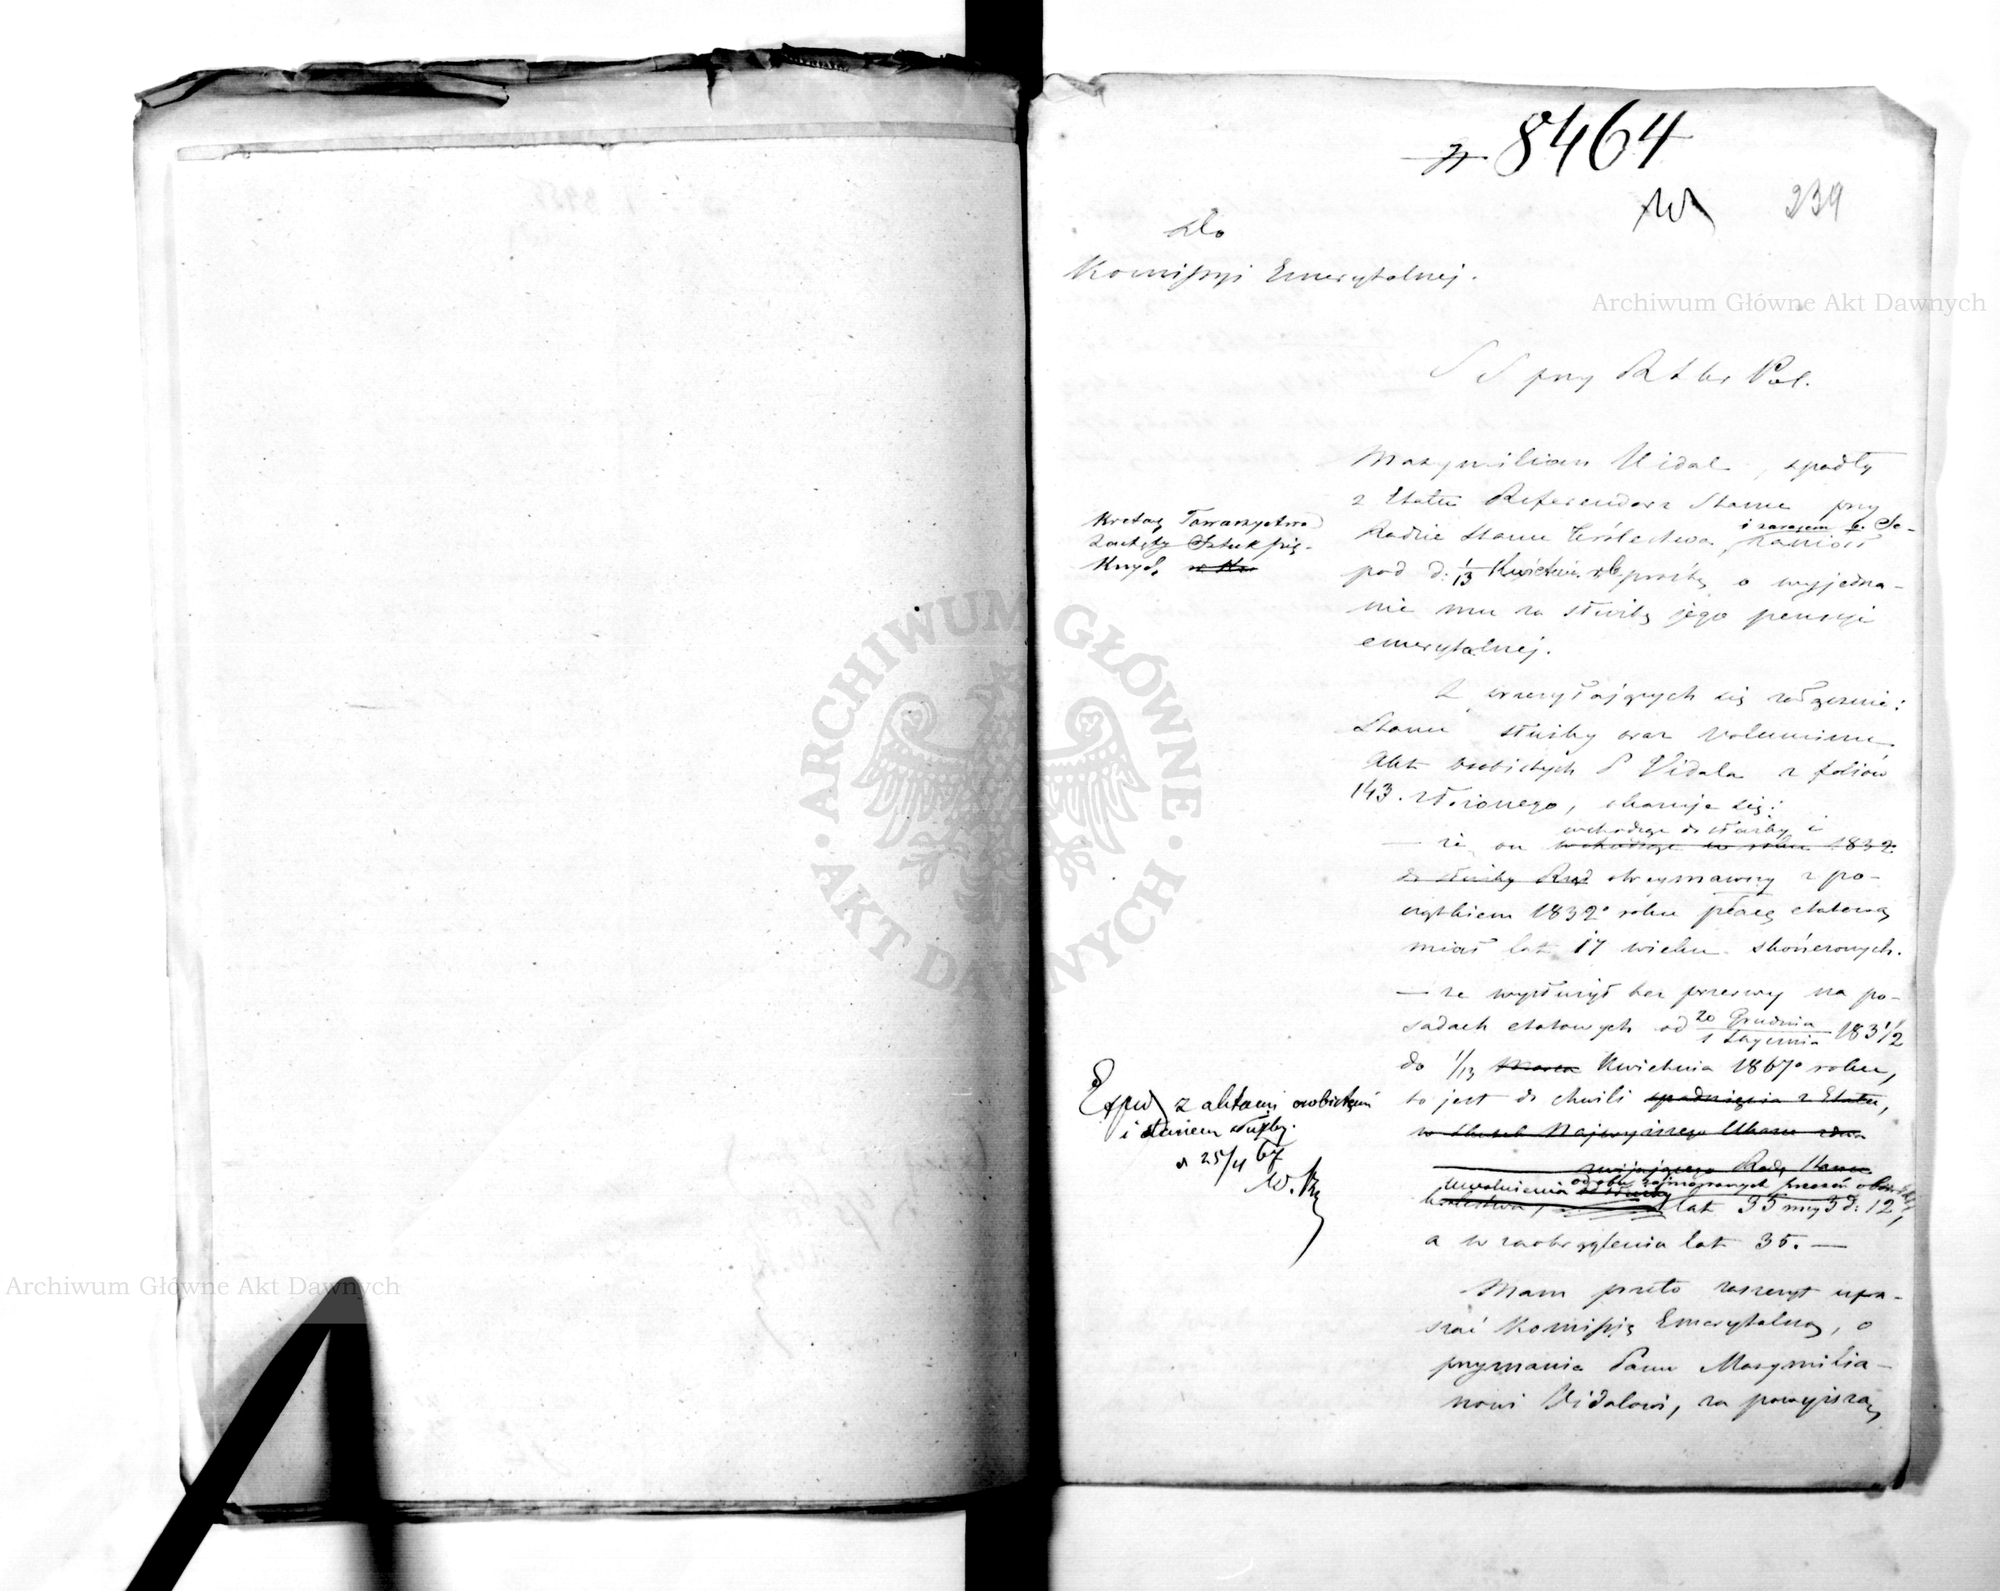 № 8464
239
Do
Komissyi Emerytalnej.
Archiwum Główne Akt Dawnych
SS przy R A Kr Pol.
Maxymilian Vidal, spadły
z Etatu Referendarz Stanu przy
Radzie Stanu Królestwa, i zarazem b. Se-
kretarz Towarzystwa
Zachęty Sztuk pię-
knych, zaniósł
pod d. 1/13 Kwietnia rb. prośbę o wyjedna-
nie mu za służbę jego pensyi
emerytalnej.
Z przesyłających się załączenie:
Stanu służby oraz Voluminu
Akt osobistych P Vidala z foliów
143. złożonego, okazuje się:
— że on wchodząc do służby i
wchodząc w roku 1832
do służby Rząd otrzymawszy z po-
czątkiem 1832º roku płacę etatową
miał lat 17 wieku skończonych.
— że wysłużył bez przerwy na po-
sadach etatowych od 20 Grudnia / 1 Stycznia 183 1/2
do 1/13 Marca Kwietnia 1867º roku,
to jest do chwili spadnięcia z Etatu,
w skutek Najwyższego Ukazu zwi-
nijającego Radę Stanu
Królestwa, uwolnienia od obu zajmowanych przezeń obowiązków,
lat 35 mcy 3 d: 12,
a w zaokrągleniu lat 35. —
Exped z aktami osobistemi
i stanem służby.
d 25/4 67
Mam przeto zaszczyt upra-
szać Komissyą Emerytalną, o
przyznanie Panu Maxymilia-
nowi Vidalowi, za powyższą
Archiwum Główne Akt Dawnych
ARCHIWUM GŁÓWNE · AKT DAWNYCH ·